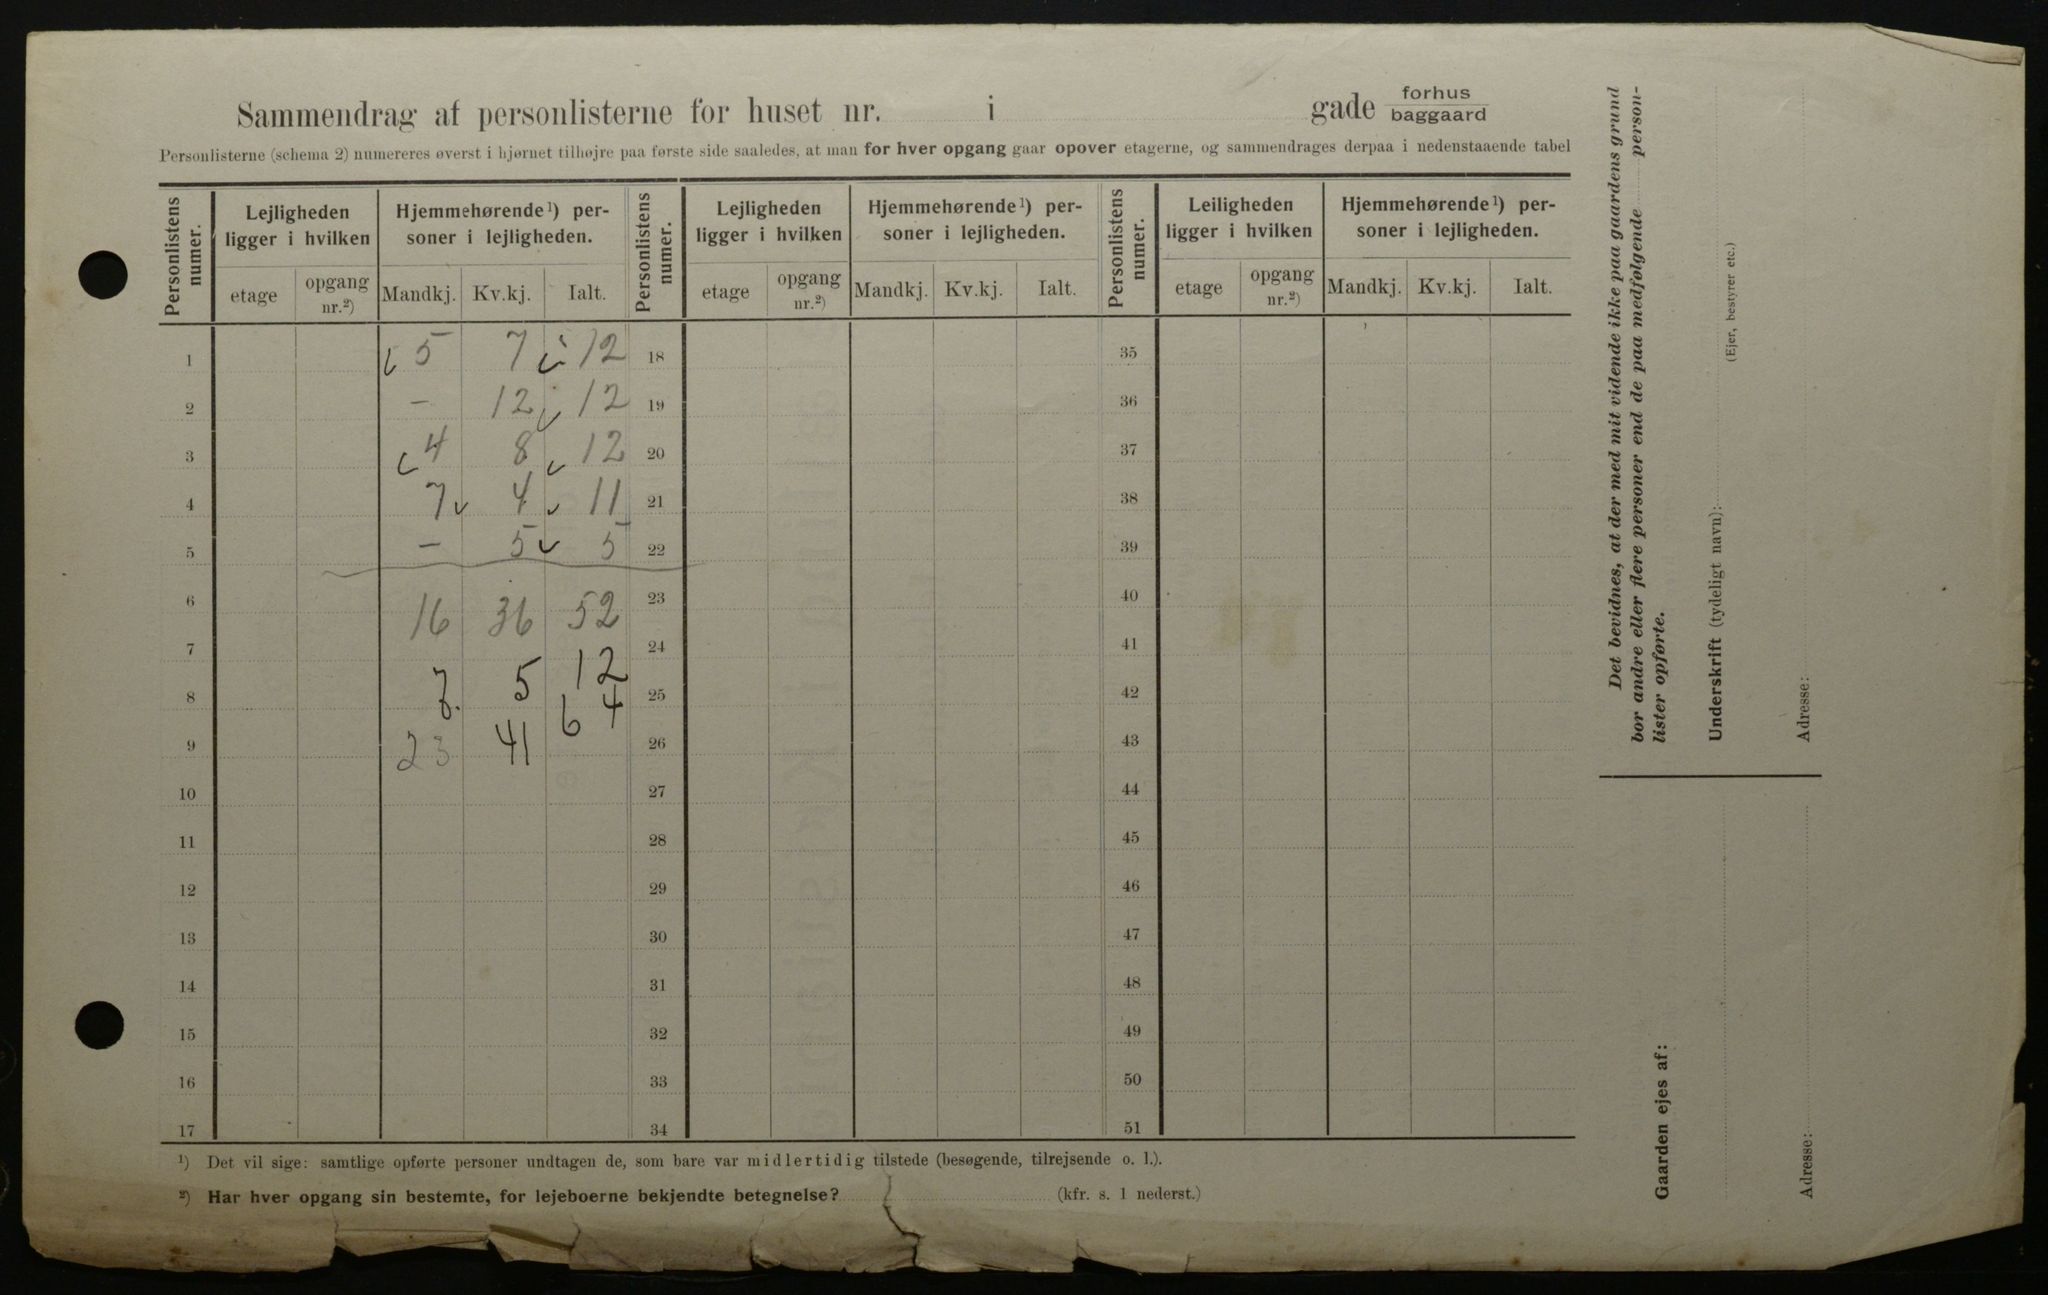 Sammendrag af personlisterne for huset nr. i gade forhus baggaard
Personlisterne (schema 2) numereres øverst i hjørnet tilhøjre paa første side saaledes, at man for hver opgang gaar opover etagerne, og sammendrages derpaa i nedenstaaende tabel
Personlistens numer.
Lejligheden ligger i hvilken
Hjemmehørende¹) personer i lejligheden.
Personlistens numer.
Lejligheden ligger i hvilken
Hjemmehørende¹) personer i lejligheden.
Personlistens numer.
Leiligheden ligger i hvilken
Hjemmehørende¹) personer i lejligheden.
etage opgang nr.²) Mandkj. Kv.kj. Ialt. etage opgang nr.²) Mandkj. Kv.kj. Ialt. etage opgang nr.²) Mandkj. Kv.kj. Ialt.
1 5 7 12 18 35
2 – 12 12 19 36
3 4 8 12 20 37
4 7 4 11 21 38
5 – 5 5 22 39
6 16 36 52 23 40
7 24 41
8 7 5 12 25 42
9 23 41 64 26 43
10 27 44
11 28 45
12 29 46
13 30 47
14 31 48
15 32 49
16 33 50
17 34 51
¹) Det vil sige: samtlige opførte personer undtagen de, som bare var midlertidig tilstede (besøgende, tilrejsende o. l.).
²) Har hver opgang sin bestemte, for lejeboerne bekjendte betegnelse? (kfr. s. 1 nederst.)
Det bevidnes, at der med mit vidende ikke paa gaardens grund
bor andre eller flere personer end de paa medfølgende person-
lister opførte.
Underskrift (tydeligt navn):
(Ejer, bestyrer etc.)
Adresse:
Gaarden ejes af:
Adresse: